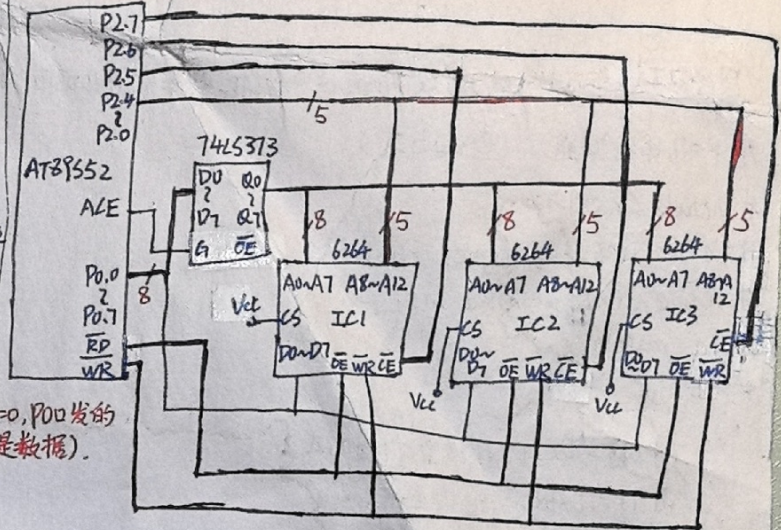 P2.7
P2.6
P2.5
P2.4
~
P2.0
AT89S52
ALE
P0.0
~
P0.7
8
RD
WR
=0,P0口发的
是数据).
74LS373
D0 Q0
~ ~
D7 Q7
G OE
5
8 5
6264
A0~A7 A8~A12
Vcc CS IC1
D0~D7 OE WR CE
8 5
6264
A0~A7 A8~A12
CS IC2
D0~
D7 OE WR CE
Vcc
8 5
6264
A0~A7 A8~A
12
CS IC3
CE
D0
~D7 OE WR
Vcc